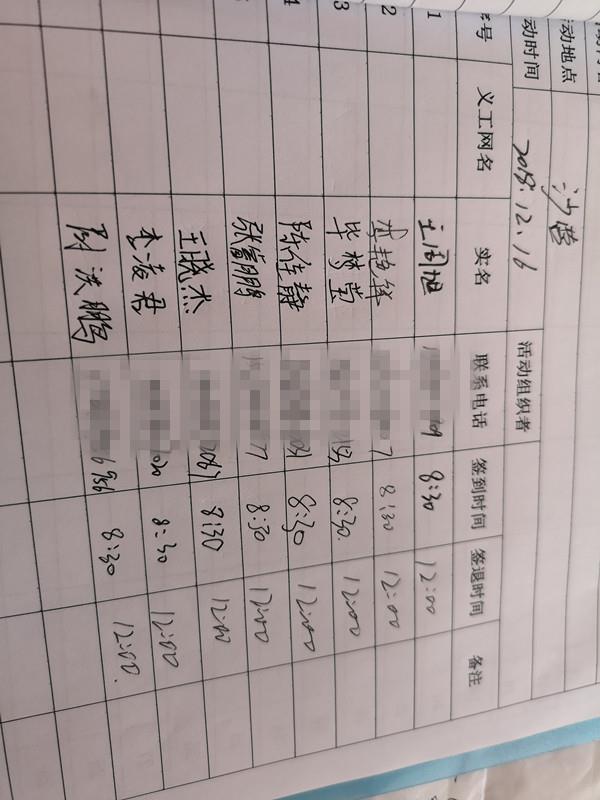 动地点 沙营
动时间 2018.12.16 活动组织者
序号 义工网名 实名 联系电话 签到时间 签退时间 备注
1 09 8:30 12:00
2 7 8:30 12:00
3 毕梦莹 8:30. 12:00
4 陈佳静 8:30 12:00
张富鹏 77 8:30 12:00
王晓杰 8:30 12:00
李凌君 020 8:30 12:00
尉洪鹏 6956 8:30 12:00.